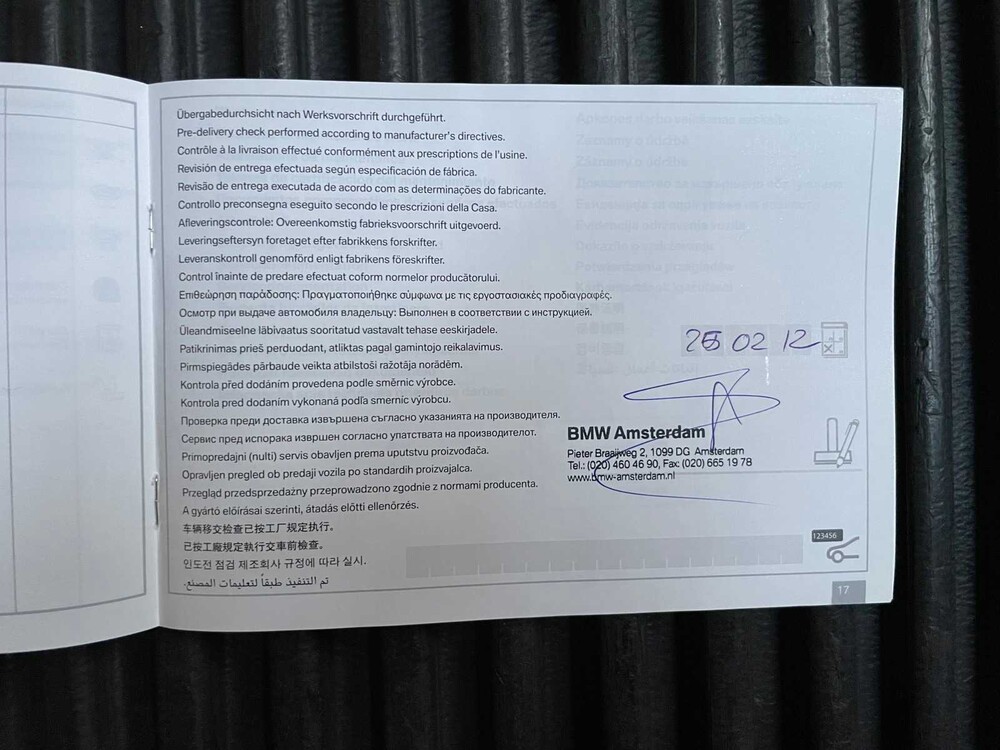 Übergabedurchsicht nach Werksvorschrift durchgeführt.
Pre-delivery check performed according to manufacturer's directives.
Contrôle à la livraison effectué conformément aux prescriptions de l'usine.
Revisión de entrega efectuada según especificación de fábrica.
Revisão de entrega executada de acordo com as determinações do fabricante.
Controllo preconsegna eseguito secondo le prescrizioni della Casa.
Afleveringscontrole: Overeenkomstig fabrieksvoorschrift uitgevoerd.
Leveringseftersyn foretaget efter fabrikkens forskrifter.
Leveranskontroll genomförd enligt fabrikens föreskrifter.
Control înainte de predare efectuat coform normelor producătorului.
Επιθεώρηση παράδοσης: Πραγματοποιήθηκε σύμφωνα με τις εργοστασιακές προδιαγραφές.
Осмотр при выдаче автомобиля владельцу: Выполнен в соответствии с инструкцией.
Üleandmiseelne läbivaatus sooritatud vastavalt tehase eeskirjadele.
Patikrinimas prieš perduodant, atliktas pagal gamintojo reikalavimus.
Pirmspiegādes pārbaude veikta atbilstoši ražotāja norādēm.
Kontrola před dodáním provedena podle směrnic výrobce.
Kontrola pred dodaním vykonaná podľa smerníc výrobcu.
Проверка преди доставка извършена съгласно указанията на производителя.
Сервис пред испорака извршен согласно упатствата на производителот.
Primopredajni (nulti) servis obavljen prema uputstvu proizvođača.
Opravljen pregled ob predaji vozila po standardih proizvajalca.
Przegląd przedsprzedażny przeprowadzono zgodnie z normami producenta.
A gyártó előírásai szerinti, átadás előtti ellenőrzés.
车辆移交检查已按工厂规定执行。
已按工廠規定執行交車前檢查。
인도전 점검 제조회사 규정에 따라 실시.
تم التنفيذ طبقاً لتعليمات المصنع.
02 12
BMW Amsterdam
Pieter Braaijweg 2, 1099 DG Amsterdam
Tel.: (020) 460 46 90, Fax: (020) 665 19 78
www.bmw-amsterdam.nl
123456
17